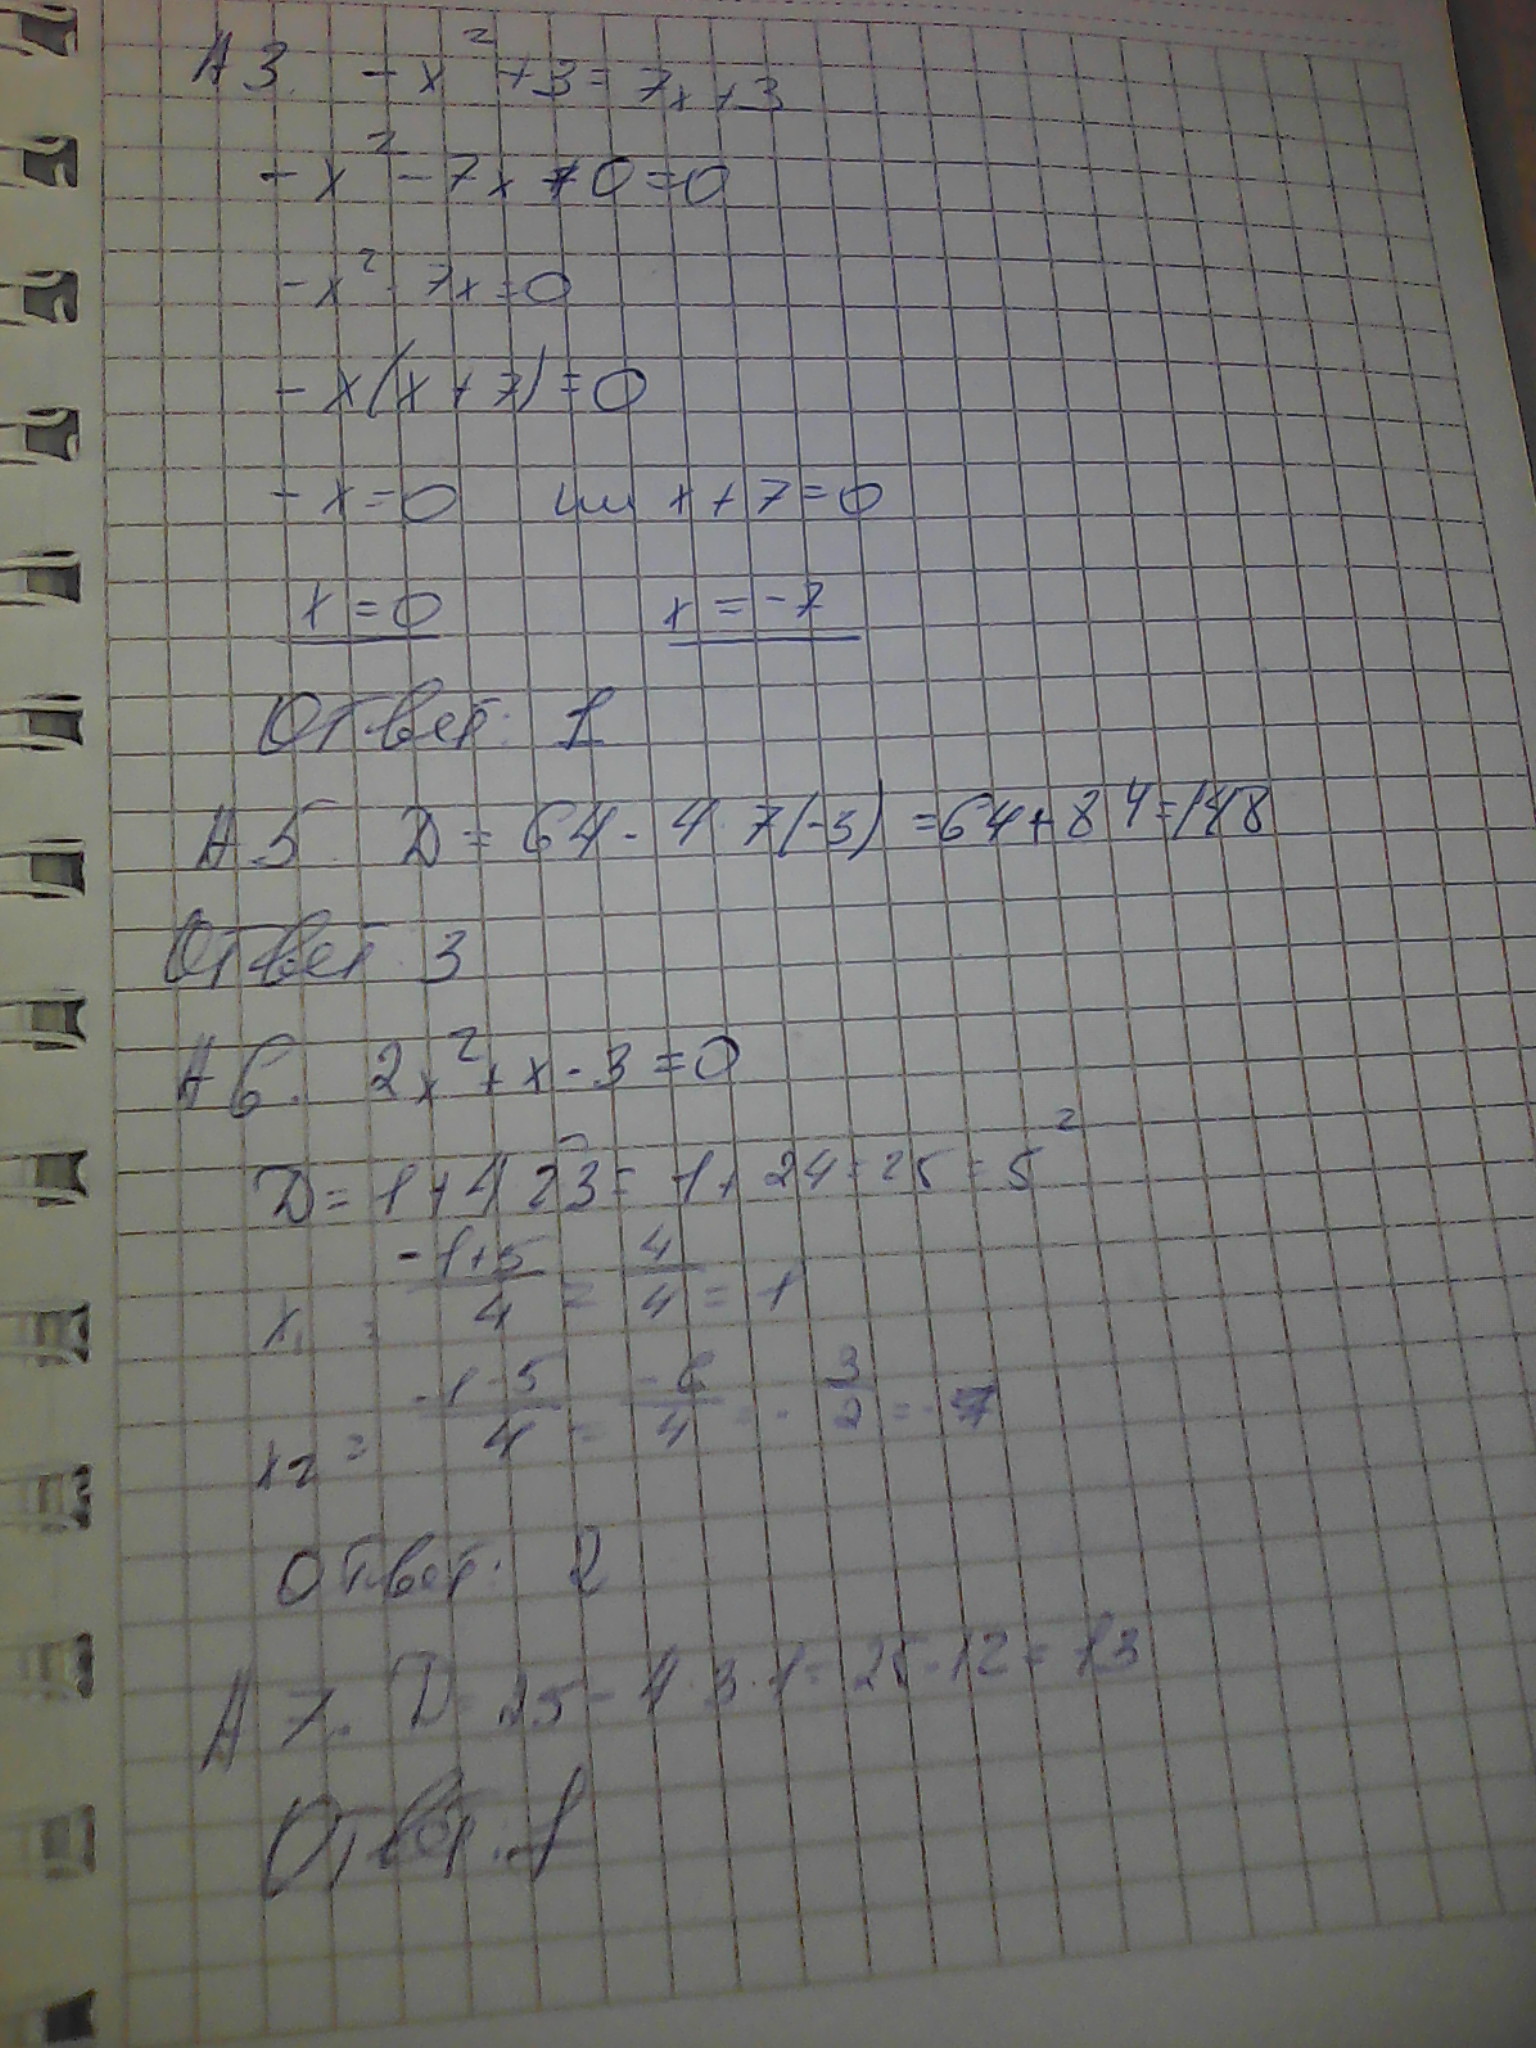 А 3. -x² + 3 = 7x + 3
-x² - 7x + 0 = 0
-x² - 7x = 0
-x(x + 7) = 0
-x = 0 или x + 7 = 0
x = 0 x = -7
Ответ: 1
А 5. D = 64 - 4·7(-3) = 64 + 84 = 148
Ответ 3
А 6. 2x² + x - 3 = 0
D = 1 + 4·2·3 = 1 + 24 = 25 = 5²
x₁ = (-1+5)/4 = 4/4 = 1
x₂ = (-1-5)/4 = -6/4 = -3/2 = -
Ответ: 2
А 7. D = 25 - 4·3·1 = 25 - 12 = 13
Ответ: 1